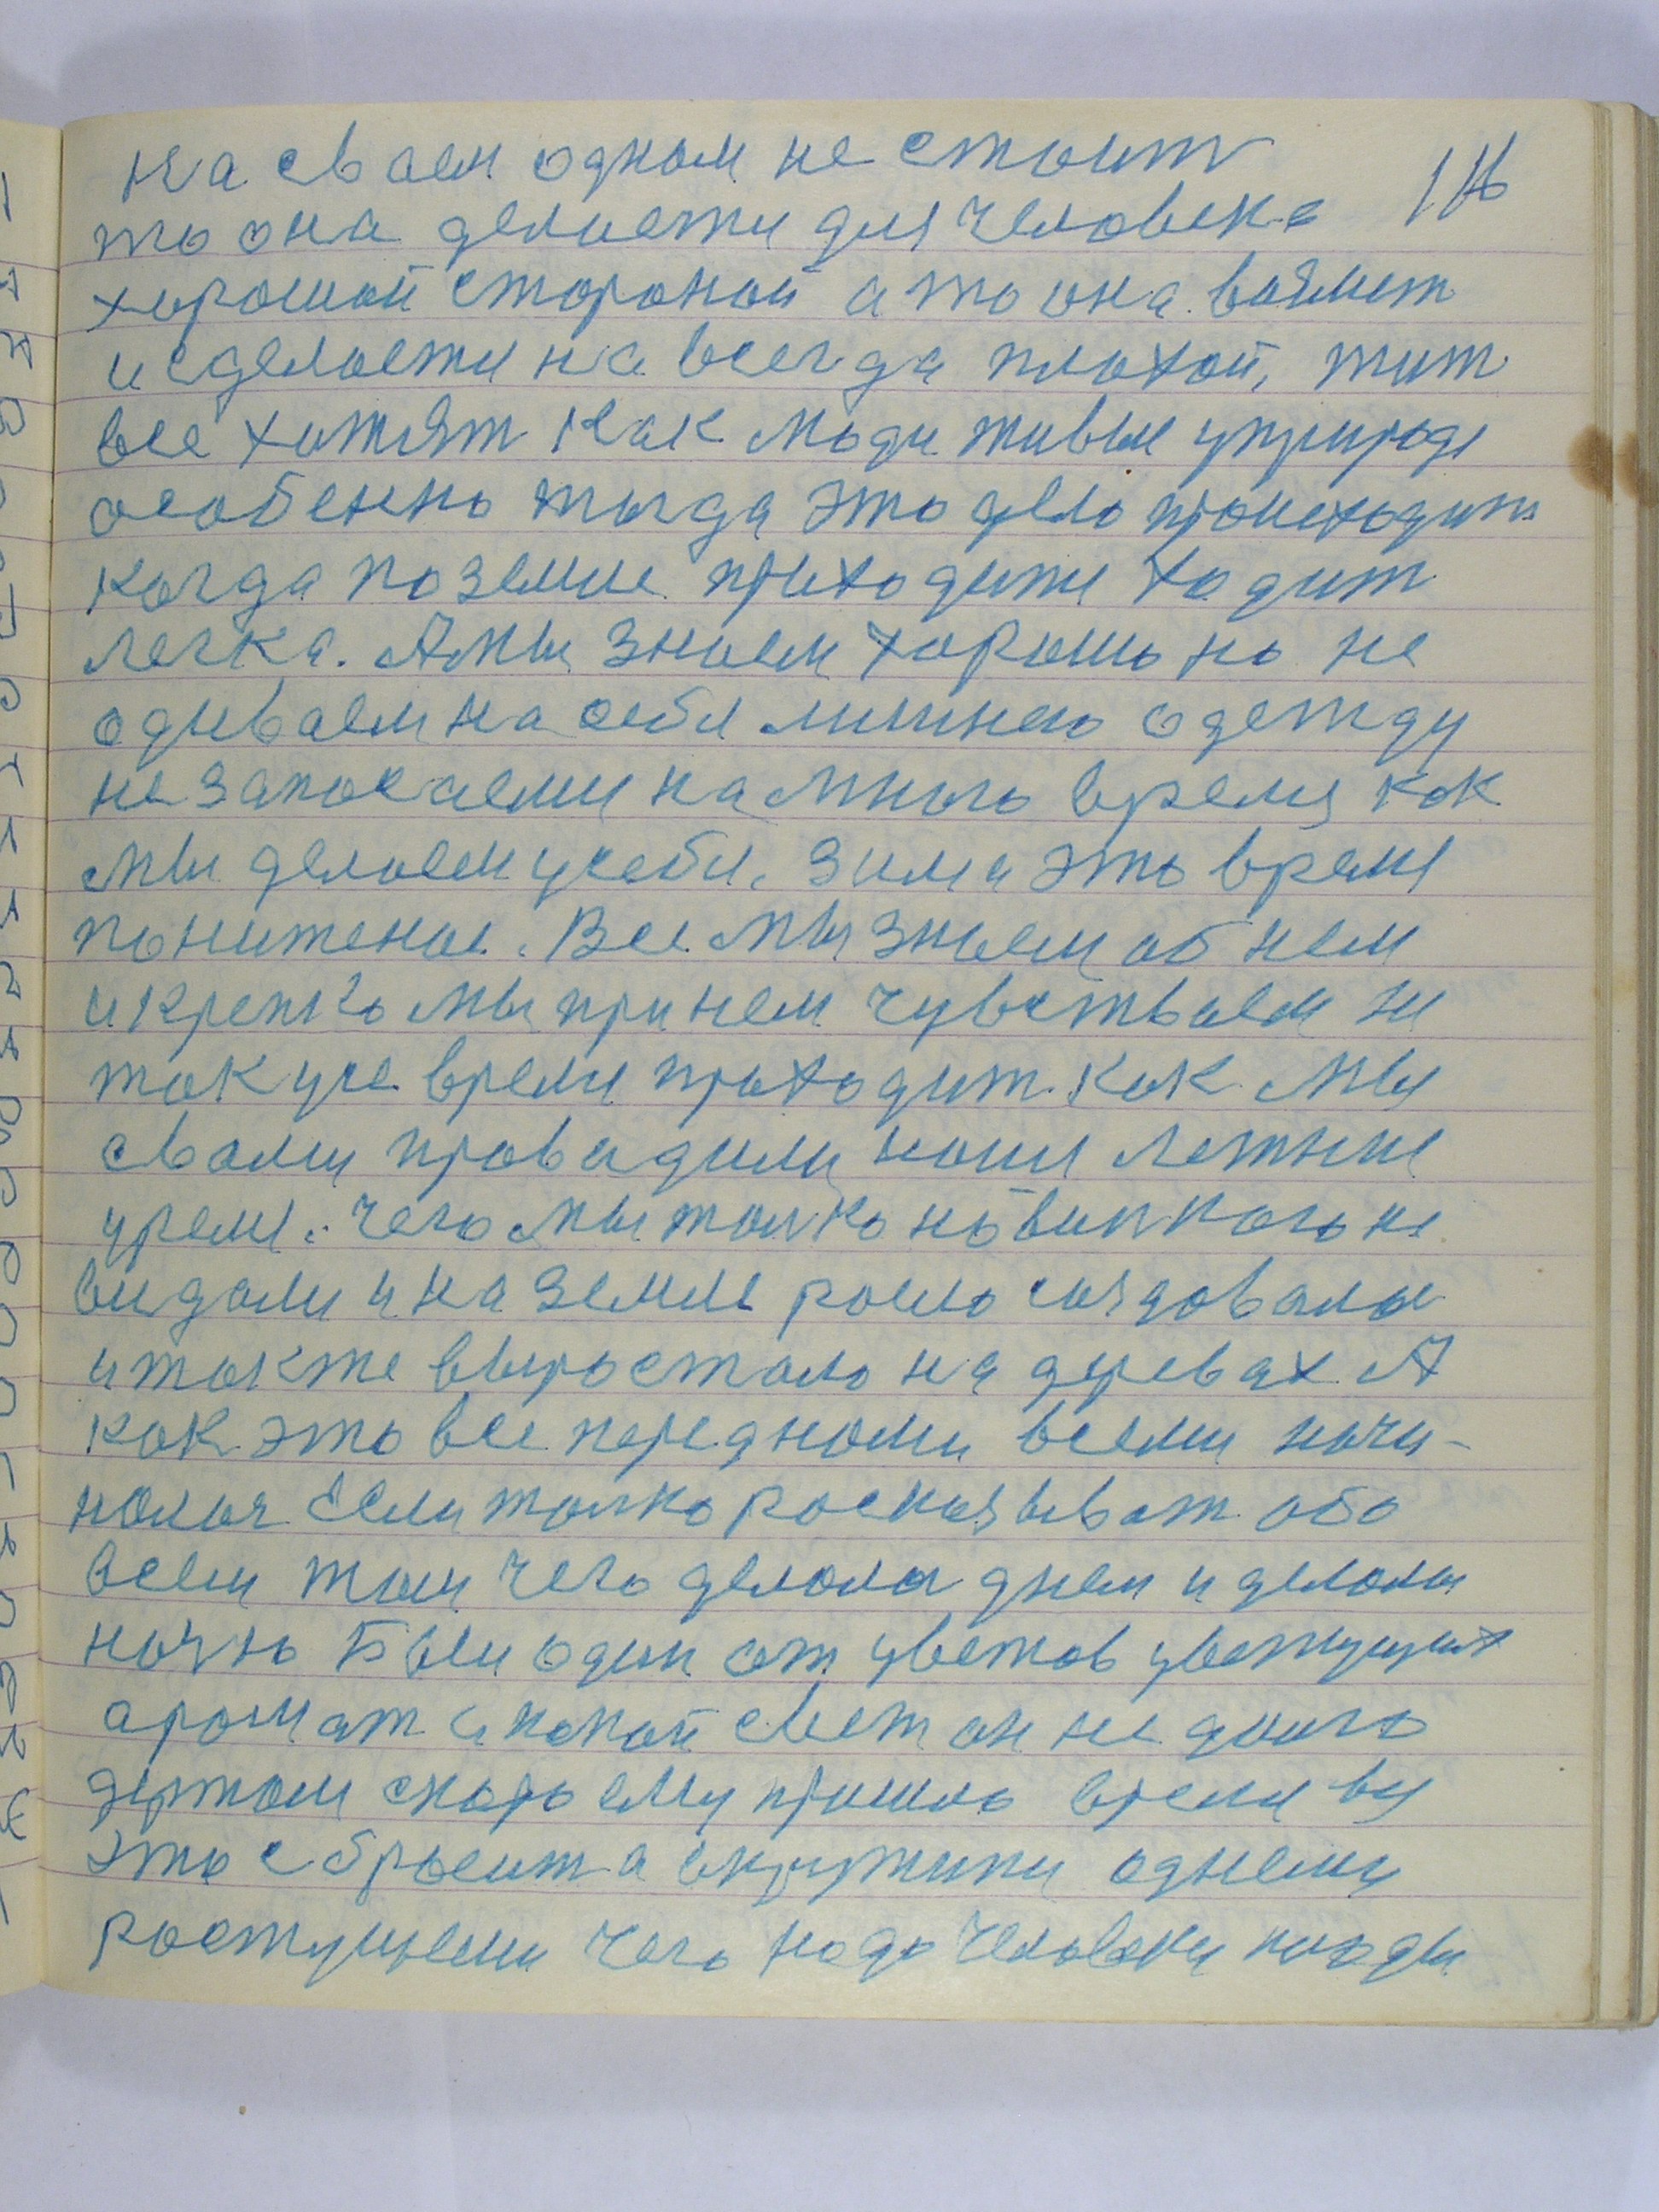 на сваем одном не стоит
то она делается для человека
хорошой стороной а то она возмет
и сделается на всегда плохой, тит
все хотят как люди живые уприроде
особенно тогда это дело происходит
когда по земле приходится ходит
легка. А мы знаем хорошо но не
одиваем на себя лишнею одежду
не запосаеми на много время как
мы делаем усебя. Зима это время
пониженое. Все мы знаем об нем
и крепко мы при нем чувствоаем не
так уже время проходит как мы
свами проводили наши летние
время. чего мы толко новинкого не
видали и на земле росло создовалос
и также выростало на деревах А
как это все переднами всеми начи-
налося Если толко росказыват обо
всем том чего делалос днем и делалос
ночю Был один от цветов цветущих
аромат и какой свет он не долго
держался скоро ему пришло время вся
это сбросит а окружится однеми
ростущеми чего надо человеку плоды
116